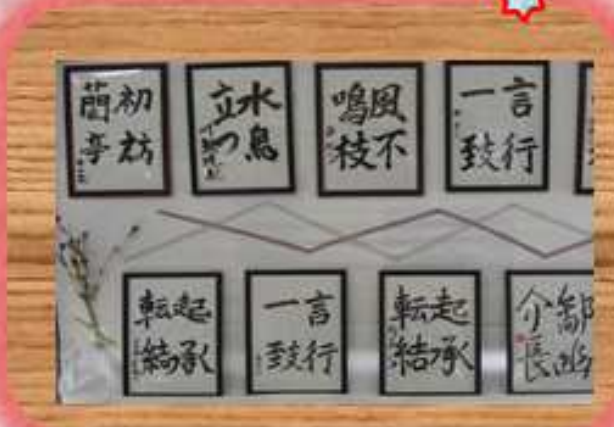 初訪
蘭亭
水鳥
立つ
風不
鳴枝
言行
一致
起承
転結
言行
一致
起承
転結